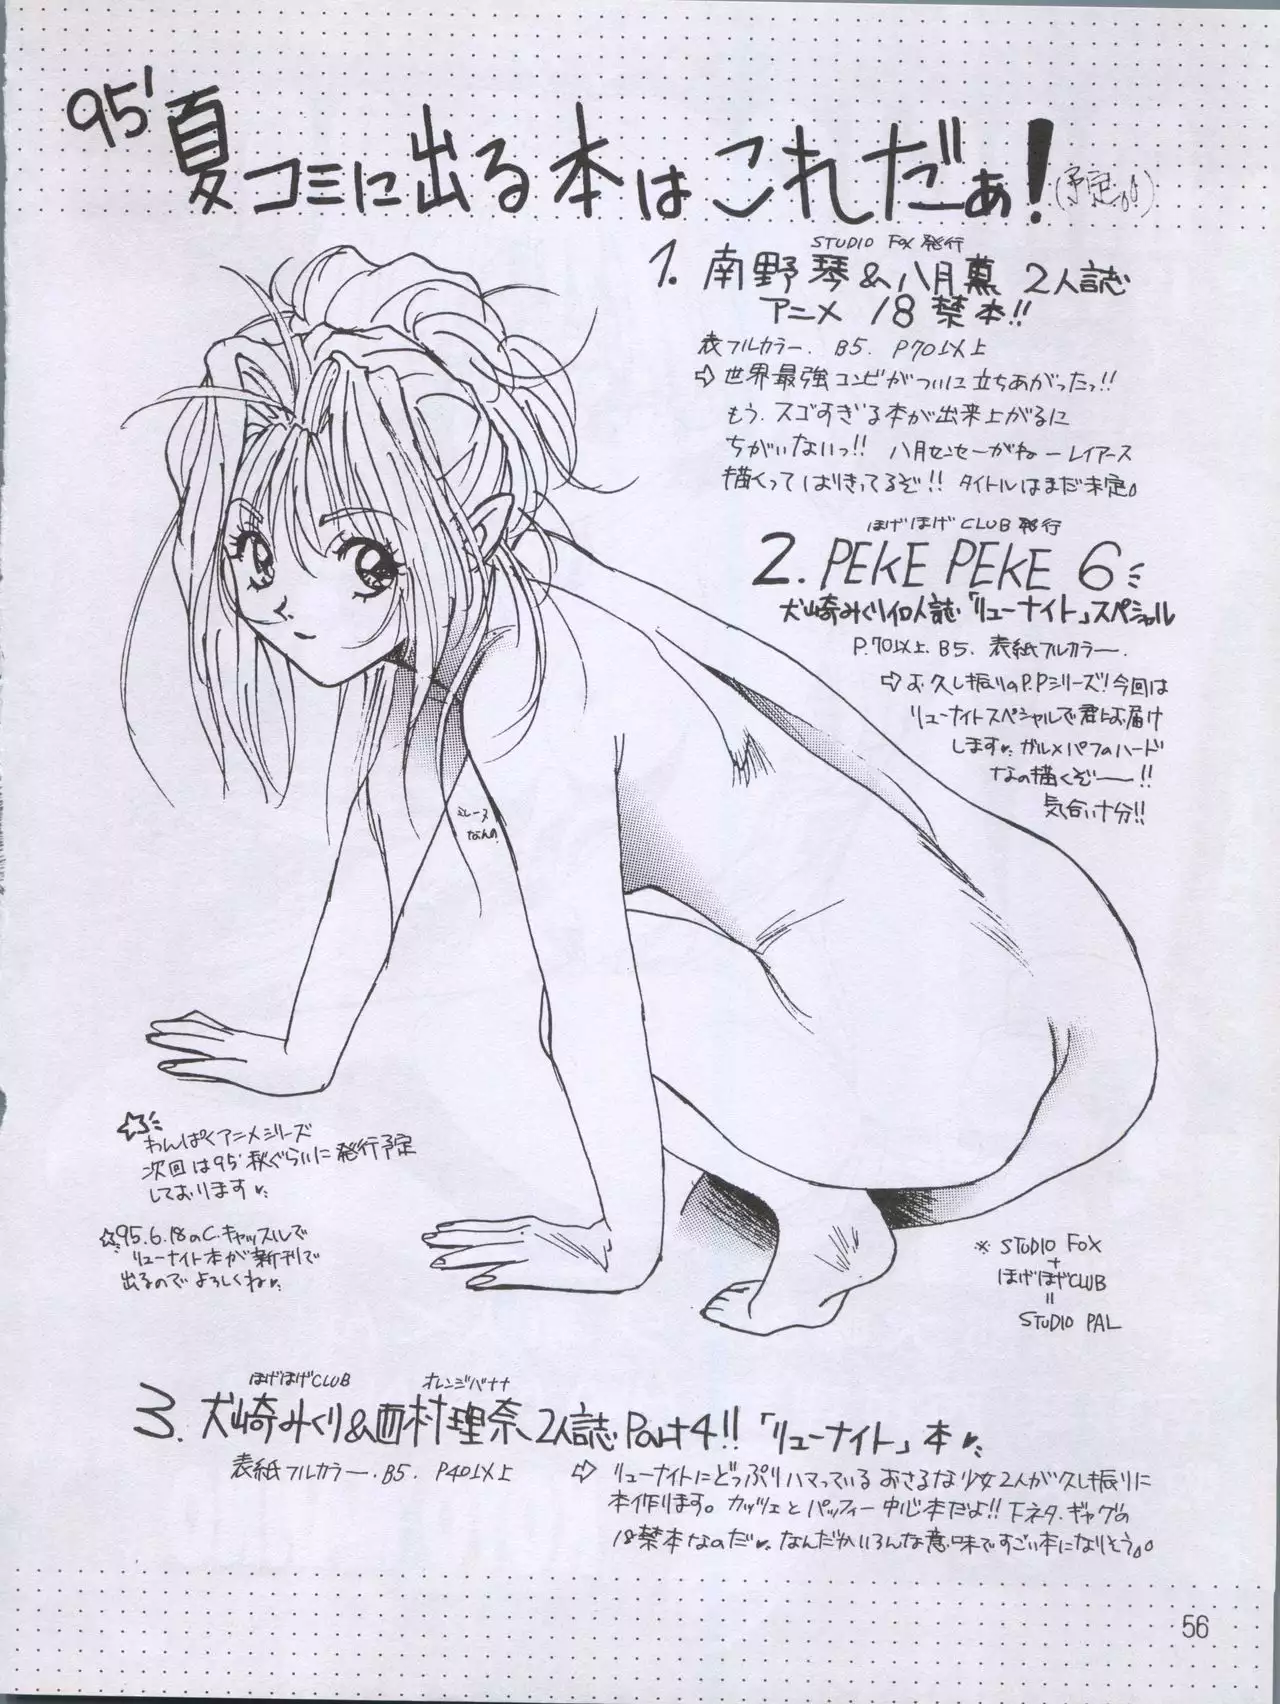 95' 夏コミに出る本はこれだぁ!(予定)
STUDIO FOX 発行
1. 南野琴&八月薫 2人誌
アニメ 18禁本!!
表フルカラー. B5. P70以上
⇨ 世界最強コンビがついに立ちあがったっ!!
もう.スゴすぎる本が出来上がるに
ちがいないっ!! 八月センセーがねーレイアース
描くってはりきってるぞ!! タイトルはまだ未定
ほげほげCLUB発行
2. PEKE PEKE 6
犬崎みくり個人誌「リューナイト」スペシャル
P.70以上. B5. 表紙フルカラー.
⇨ お久し振りのP.Pシリーズ!今回は
リューナイトスペシャルで君にお届け
します♥ ガルメパフのハード
なの描くぞー!!
気合い十分!!
ミレーヌ
なんの
☆わんぱくアニメシリーズ
次回は95'秋ぐらいに発行予定
しております♥
☆95.6.18のC.キャッスルで
リューナイト本が新刊で
出るのでよろしくね♥
※ STUDIO FOX
+
ほげほげCLUB
=
STUDIO PAL
ほげほげCLUB オレンジバナナ
3. 犬崎みくり&西村理奈 2人誌 Part4!!「リューナイト」本♥
表紙フルカラー. B5. P40以上
⇨ リューナイトにどっぷりハマっているおさるな少女2人が久し振りに
本作ります。カッツェとパッフィー中心本だよ!!下ネタ.ギャグの
18禁本なのだ♥ なんだかいろんな意味ですごい本になりそう。
56